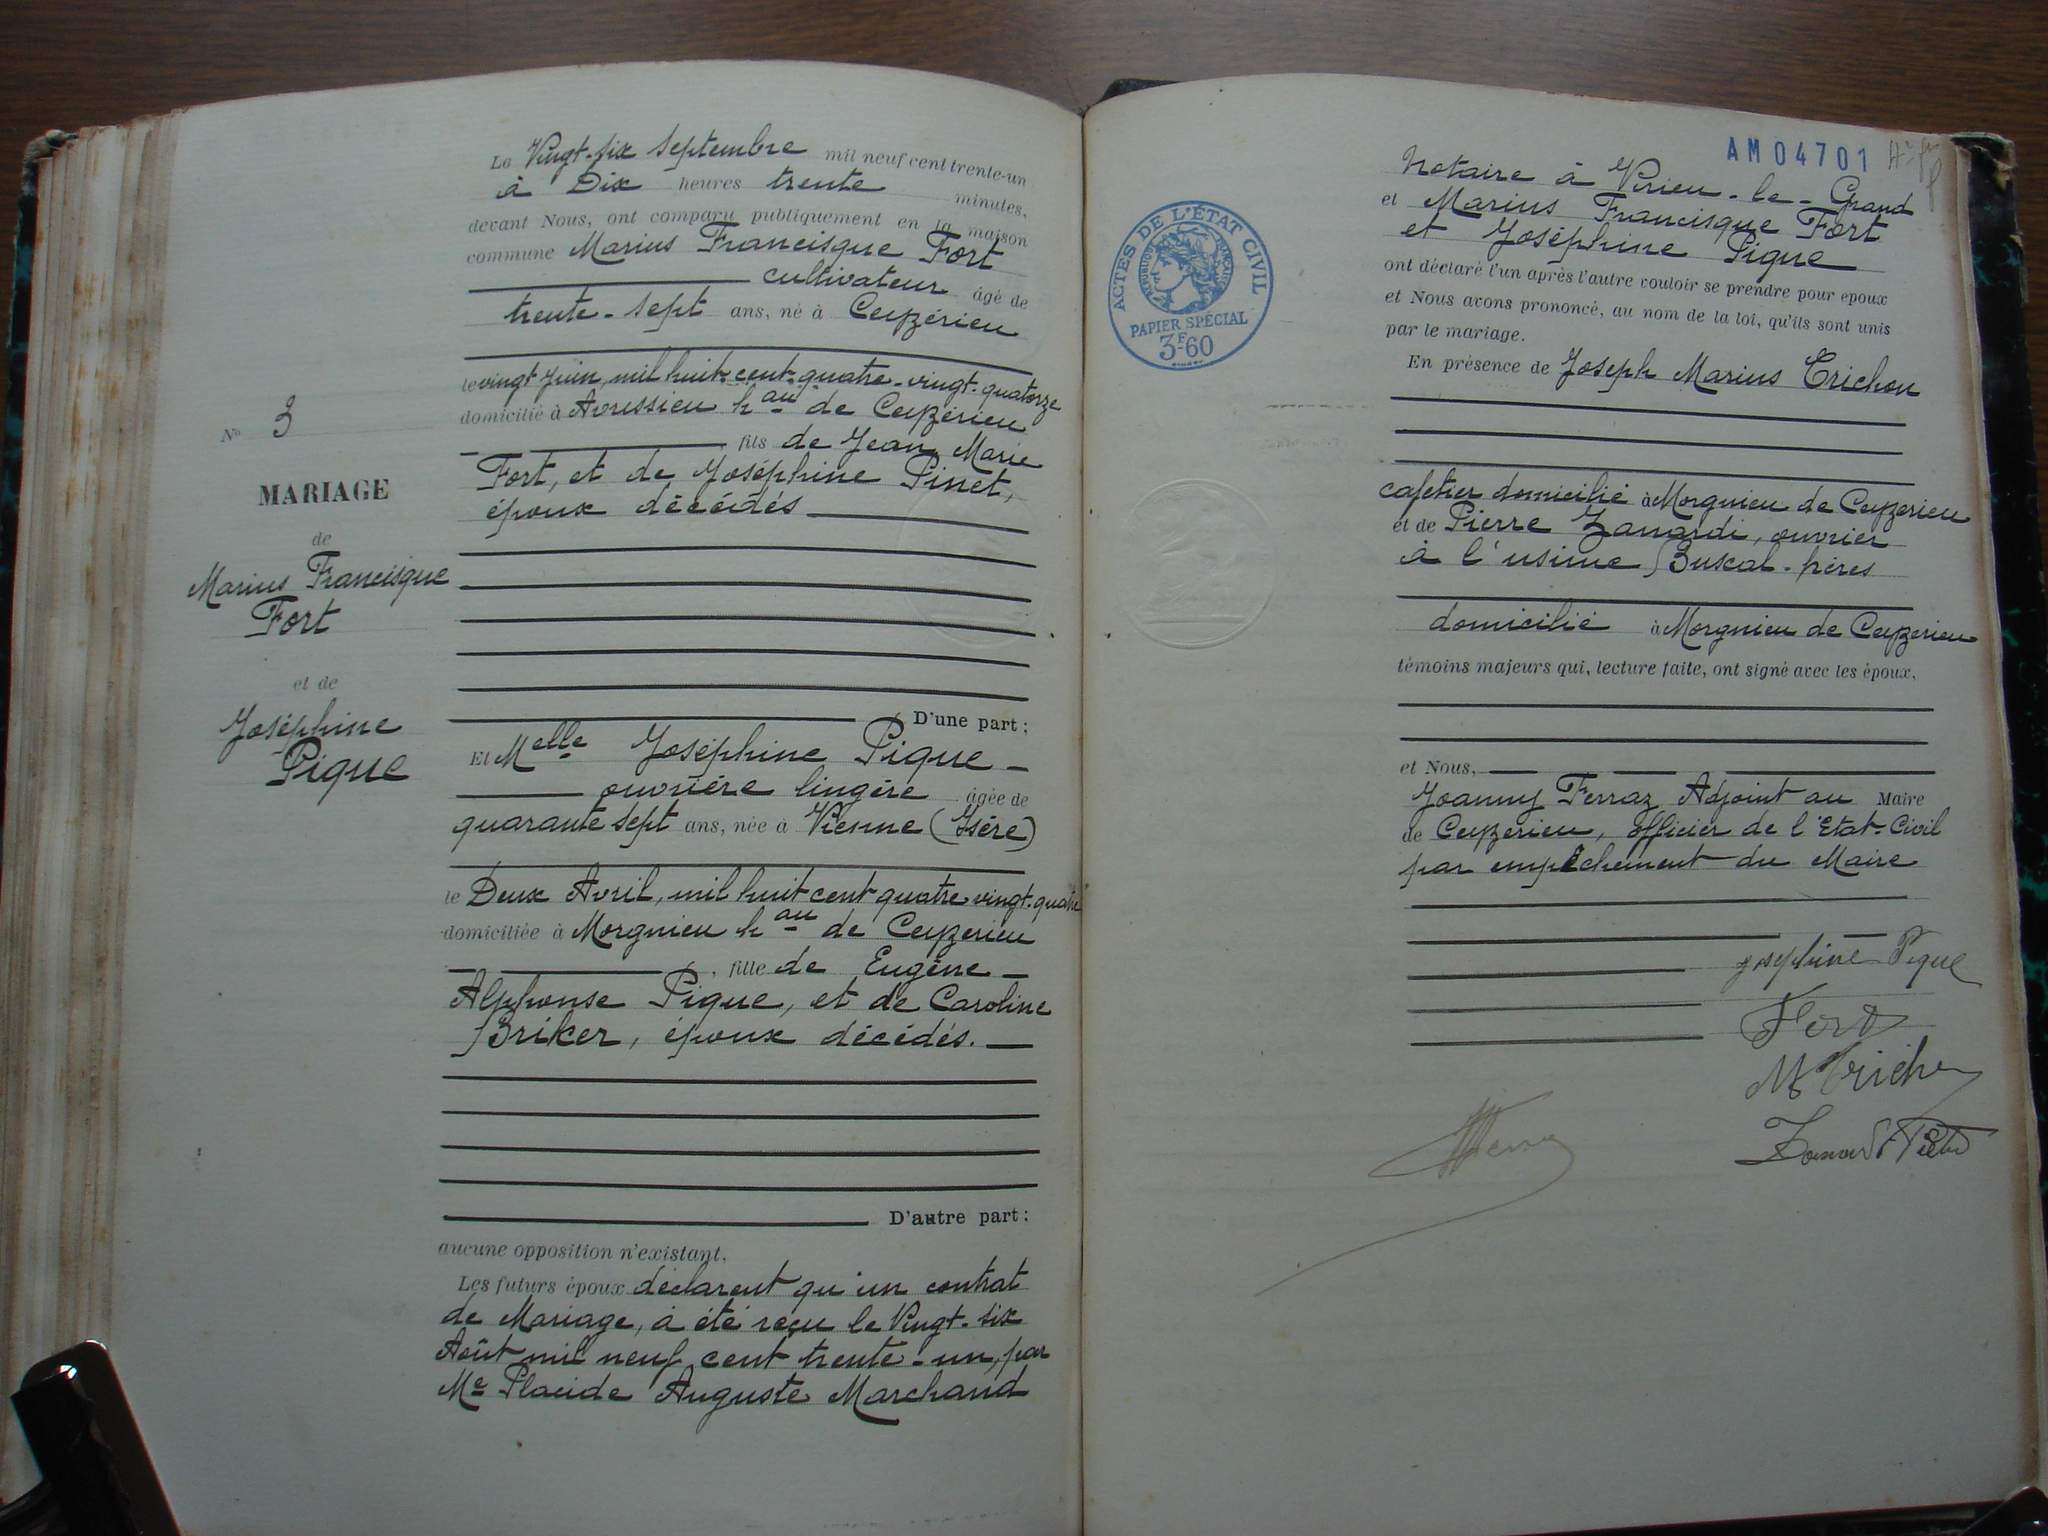 Le Vingt-six septembre mil neuf cent trente-un
à Dix heures trente minutes,
devant Nous, ont comparu publiquement en la maison
commune Marius Francisque Fort
cultivateur âgé de
trente-sept ans, né à Ceyzérieu
le vingt Juin, mil huit-cent-quatre-vingt-quatorze
domicilié à Avrissieu hau de Ceyzérieu
fils de Jean Marie
Fort, et de Joséphine Pinet,
époux décédés
No 3
MARIAGE
de
Marius Francisque
Fort
et de
Joséphine
Pique
D'une part;
Et Melle Joséphine Pique
ouvrière lingère âgée de
quarante sept ans, née à Vienne (Isère)
le Deux Avril, mil huit cent quatre vingt-quatre
domiciliée à Morgnieu hau de Ceyzerieu
, fille de Eugène
Alphonse Pique, et de Caroline
Briker, époux décédés.
D'autre part;
aucune opposition n'existant.
Les futurs époux déclarent qu'un contrat
de Mariage, à été reçu le Vingt-six
Août mil neuf cent trente-un, par
Me Placide Auguste Marchand
AM 04701
Notaire à Virieu-le-Grand
et Marius Francisque Fort
et Joséphine Pique
ont déclaré l'un après l'autre vouloir se prendre pour époux
et Nous avons prononcé, au nom de la loi, qu'ils sont unis
par le mariage.
ACTES DE L'ÉTAT CIVIL
RÉPUBLIQUE FRANÇAISE
PAPIER SPÉCIAL
3F60
En présence de Joseph Marius Trichon
cafetier domicilié à Morgnieu de Ceyzerieu
et de Pierre Zanardi, ouvrier
à l'usine Buscal-frères
domicilié à Morgnieu de Ceyzerieu
témoins majeurs qui, lecture faite, ont signé avec les époux,
et Nous,
Joanny Ferraz Adjoint au Maire
de Ceyzerieu, officier de l'Etat-Civil
par empêchement du Maire
Josephine Pique
Fort
M Trichon